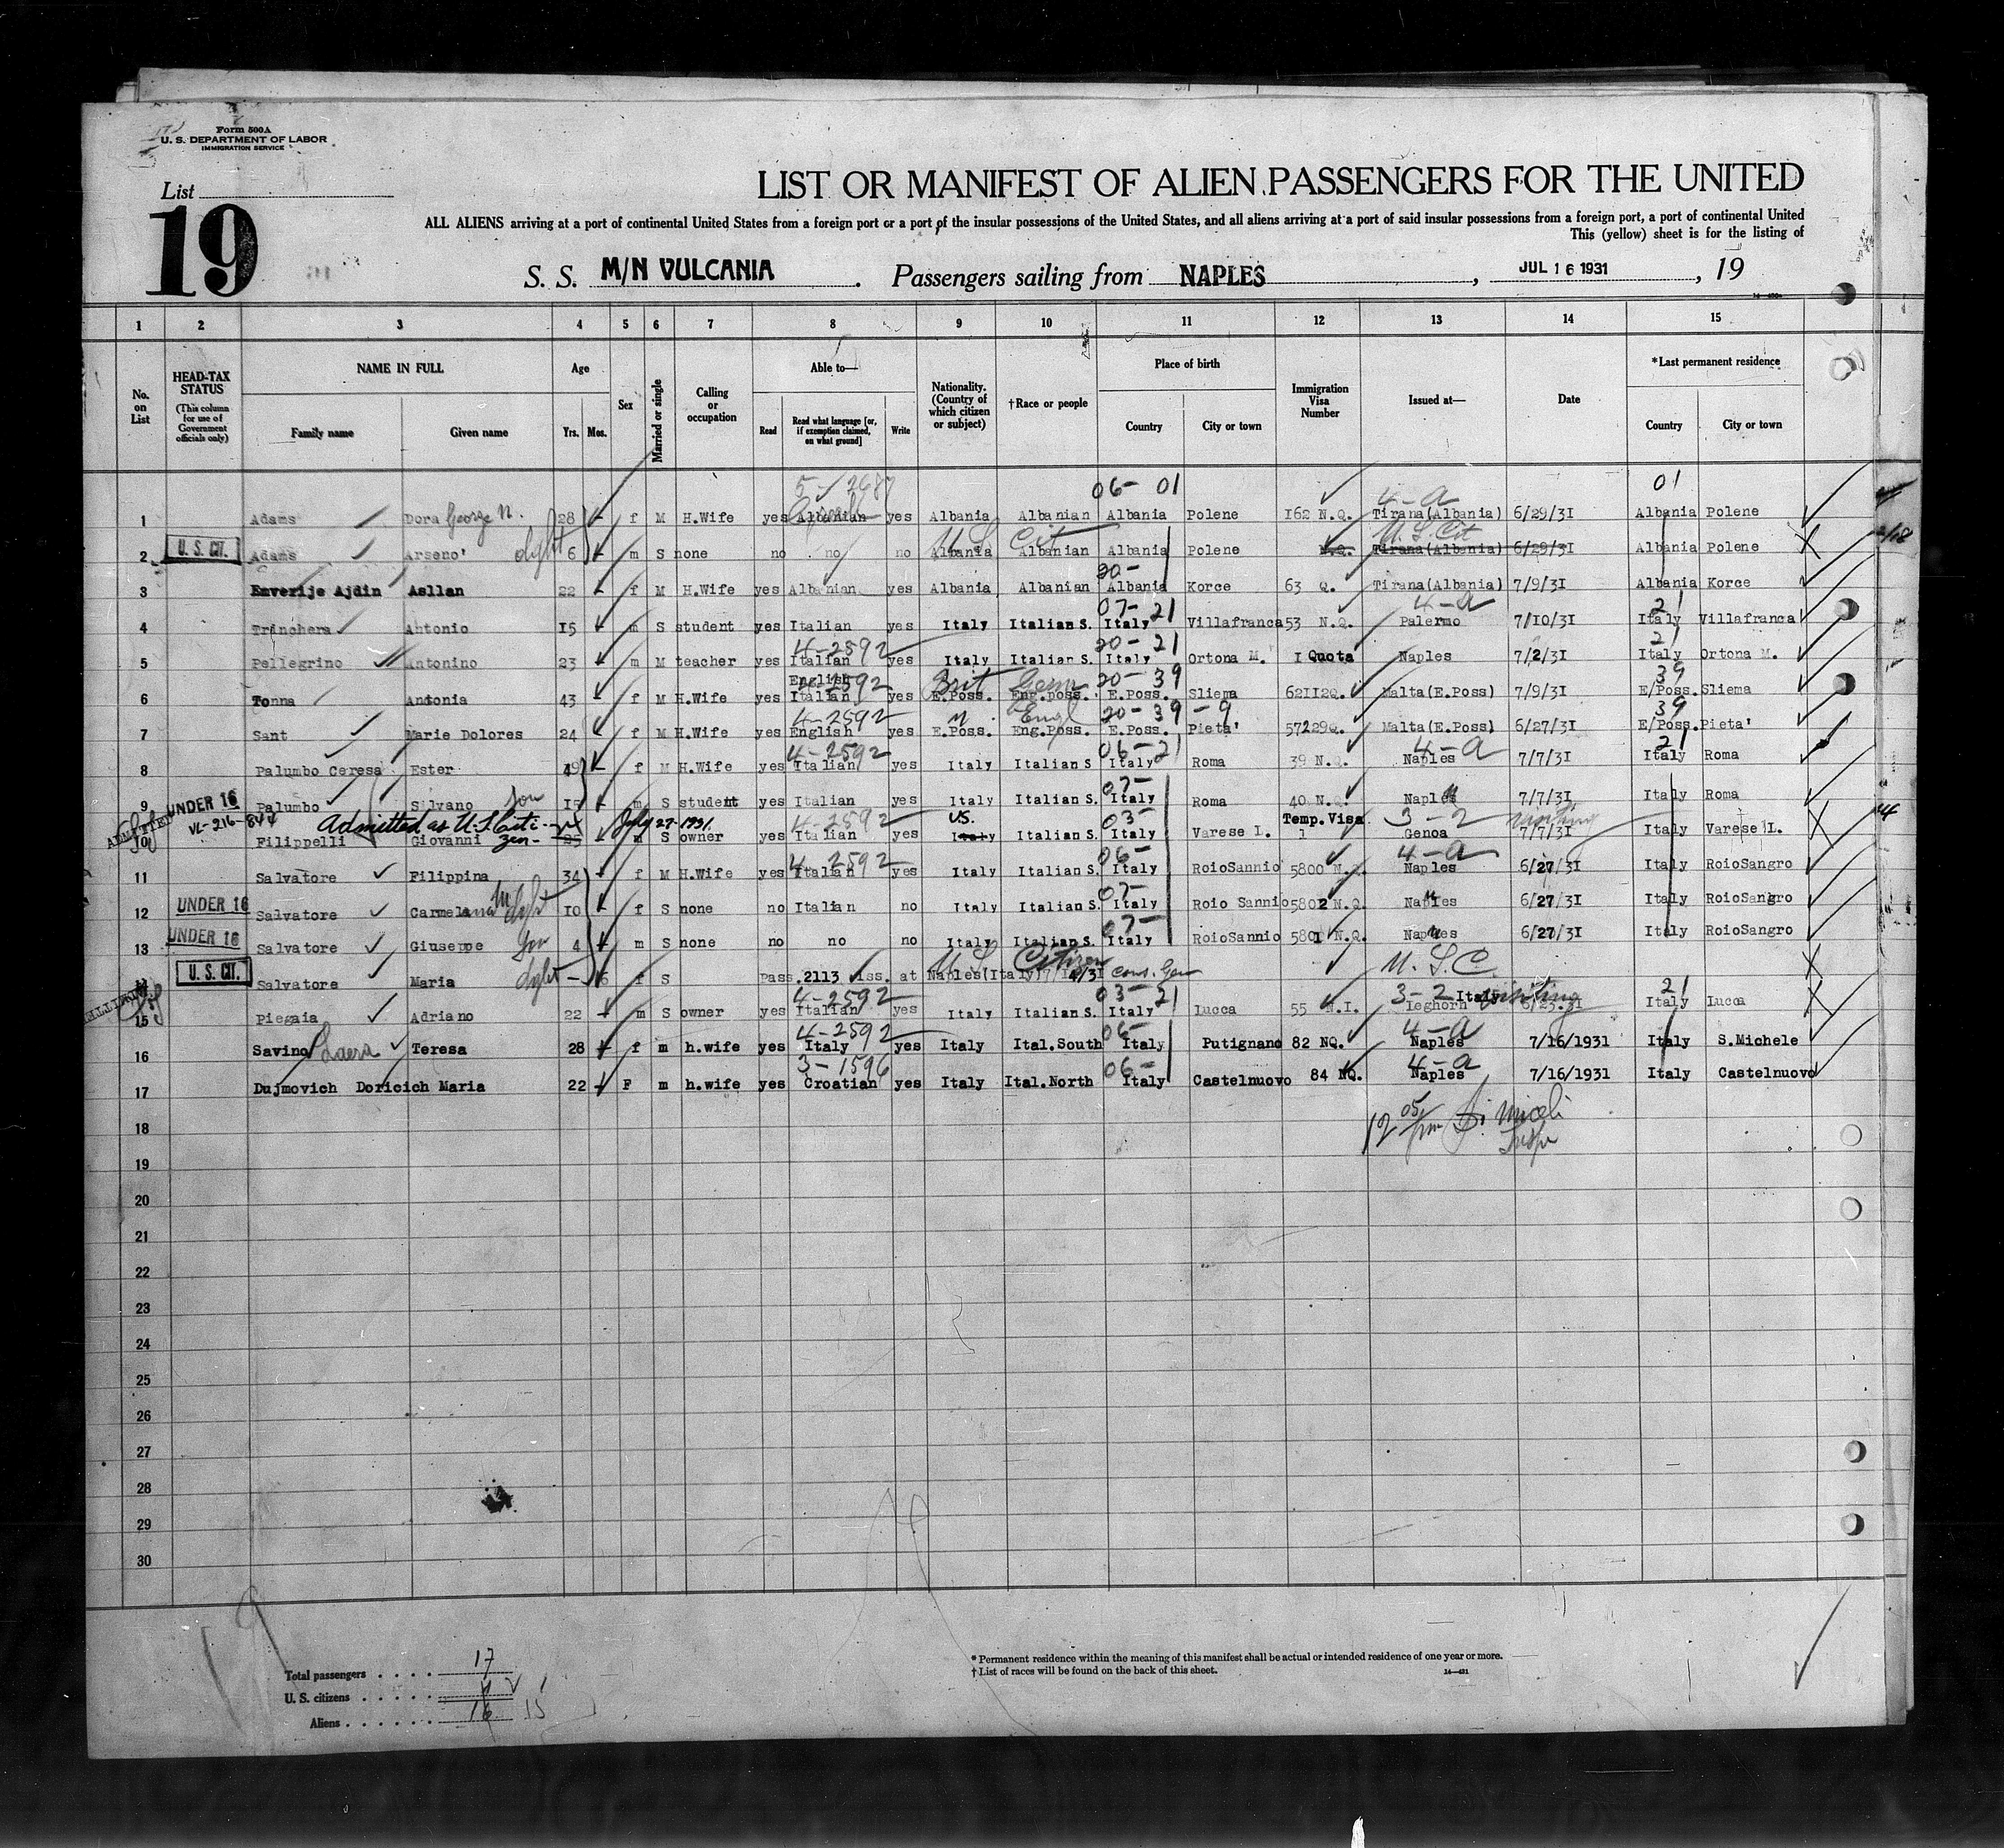 Form 500A
U. S. DEPARTMENT OF LABOR
IMMIGRATION SERVICE
List
19
LIST OR MANIFEST OF ALIEN PASSENGERS FOR THE UNITED
ALL ALIENS arriving at a port of continental United States from a foreign port or a port of the insular possessions of the United States, and all aliens arriving at a port of said insular possessions from a foreign port, a port of continental United
This (yellow) sheet is for the listing of
S. S. M/N VULCANIA. Passengers sailing from NAPLES, JUL 16 1931, 19
1 2 3 4 5 6 7 8 9 10 11 12 13 14 15
No. on List
HEAD-TAX STATUS (This column for use of Government officials only)
NAME IN FULL
Family name Given name
Age
Yrs. Mos.
Sex
Married or single
Calling or occupation
Able to—
Read Read what language [or, if exemption claimed, on what ground] Write
Nationality. (Country of which citizen or subject)
†Race or people
Place of birth
Country City or town
Immigration Visa Number
Issued at—
Date
*Last permanent residence
Country City or town
06- 01 4-a 01
1 Adams Dora George N. 28 f M H.Wife yes Albanian yes Albania Albanian Albania Polene 162 N.Q. Tirana(Albania) 6/29/31 Albania Polene
U.S. Cit U.S. Cit
2 U. S. CIT. Adams Arseno' 6 m S none no no no Albania Albanian Albania Polene N.Q. Tirana(Albania) 6/29/31 Albania Polene
20-
3 Enverije Ajdin Asllan 22 f M H.Wife yes Albanian yes Albania Albanian Albania Korce 63 Q. Tirana(Albania) 7/9/31 Albania Korce
07-21 4-a 21
4 Trinchera Antonio 15 m S student yes Italian yes Italy Italian S. Italy Villafranca 53 N.Q. Palermo 7/10/31 Italy Villafranca
4-2592 20-21 21
5 Pellegrino Antonino 23 m M teacher yes Italian yes Italy Italian S. Italy Ortona M. 1 Quota Naples 7/2/31 Italy Ortona M.
English 2592 Brit 20-39 39
6 Tonna Antonia 43 f M H.Wife yes Italian yes E.Poss. Eng.poss. E.Poss. Sliema 62112Q. Malta(E.Poss) 7/9/31 E/Poss. Sliema
4-2592 " Engl 20-39-9 39
7 Sant Marie Dolores 24 f M H.Wife yes English yes E.Poss. Eng.Poss. E.Poss. Pieta' 57229Q. Malta(E.Poss) 6/27/31 E/Poss. Pieta'
4-2592 06-21 4-a 21
8 Palumbo Ceresa Ester 49 f M H.Wife yes Italian yes Italy Italian S Italy Roma 39 N.Q. Naples 7/7/31 Italy Roma
07-
9 UNDER 16 Palumbo Silvano son 15 m S student yes Italian yes Italy Italian S. Italy Roma 40 N.Q. Naples 7/7/31 Italy Roma
ADMITTED VL-216-844 Admitted as U.S. Citizen- July 27-1931 4-2592 US. 03- Temp.Visa 3-2 visiting
10 Filippelli Giovanni 25 m S owner yes Italian yes Italy Italian S. Italy Varese L. 1 Genoa 7/7/31 Italy Varese L.
4-2592 06- 4-a
11 Salvatore Filippina 34 f M H.Wife yes Italian yes Italy Italian S. Italy RoioSannio 5800 N.Q. Naples 6/27/31 Italy RoioSangro
07-
12 UNDER 16 Salvatore Carmelana 10 f S none no Italian no Italy Italian S. Italy Roio Sannio 5802 N.Q. Naples 6/27/31 Italy RoioSangro
07-
13 UNDER 16 Salvatore Giuseppe Son 4 m S none no no no Italy Italian S. Italy RoioSannio 5801 N.Q. Naples 6/27/31 Italy RoioSangro
U.S. Citizen U.S.C.
14 U. S. CIT. Salvatore Maria 6 f S Pass. 2113 iss. at Naples(Italy) 4/31 cons. Gen
4-2592 03-21 3-2 Italy visiting 21
15 Piegaia Adriano 22 m S owner yes Italian yes Italy Italian S. Italy Lucca 55 N.I. Leghorn 6/25.31 Italy Lucca
4-2592 06- 4-a
16 Savino Laera Teresa 28 f m h.wife yes Italy yes Italy Ital.South Italy Putignano 82 NQ. Naples 7/16/1931 Italy S.Michele
3-1596 06- 4-a
17 Dujmovich Doricich Maria 22 F m h.wife yes Croatian yes Italy Ital.North Italy Castelnuovo 84 NQ. Naples 7/16/1931 Italy Castelnuovo
18
12 05 pm
19
20
21
22
23
24
25
26
27
28
29
30
Total passengers . . . . 17
U. S. citizens . . . . .
Aliens . . . . . . 16 15
* Permanent residence within the meaning of this manifest shall be actual or intended residence of one year or more.
† List of races will be found on the back of this sheet.
14—421